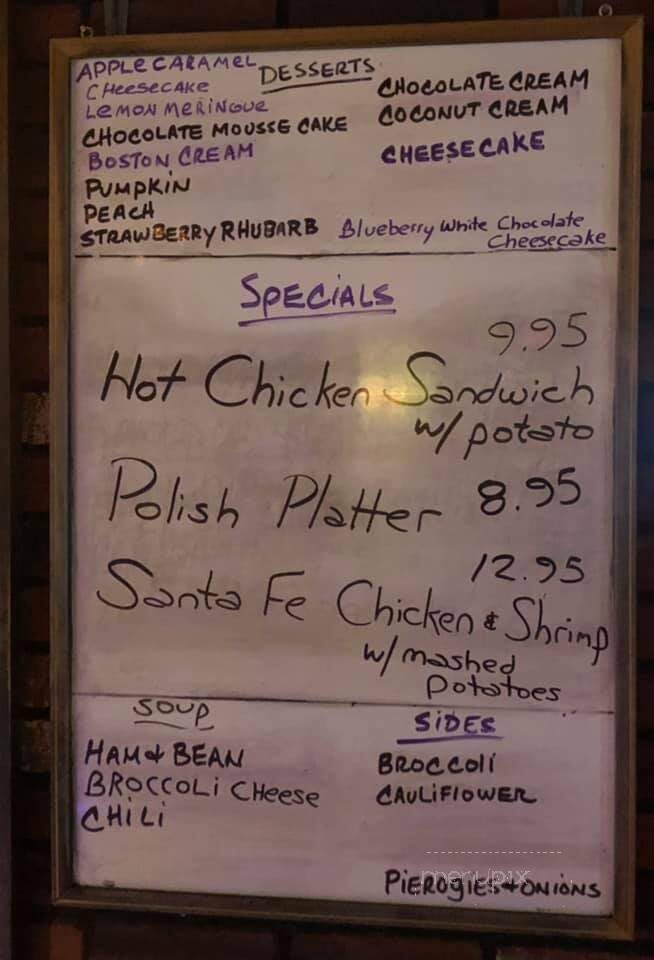 DESSERTS
APPLE CARAMEL
CHEESECAKE
LEMON MERINGUE
CHOCOLATE MOUSSE CAKE
BOSTON CREAM
PUMPKIN
PEACH
STRAWBERRY RHUBARB
CHOCOLATE CREAM
COCONUT CREAM
CHEESECAKE
Blueberry White Chocolate
Cheesecake
SPECIALS
9.95
Hot Chicken Sandwich
w/ potato
Polish Platter 8.95
12.95
Santa Fe Chicken & Shrimp
w/ mashed
potatoes
SOUP
HAM & BEAN
BROCCOLI CHEESE
CHILI
SIDES
BROCCOLI
CAULIFLOWER
PIEROGIES & ONIONS
menupix